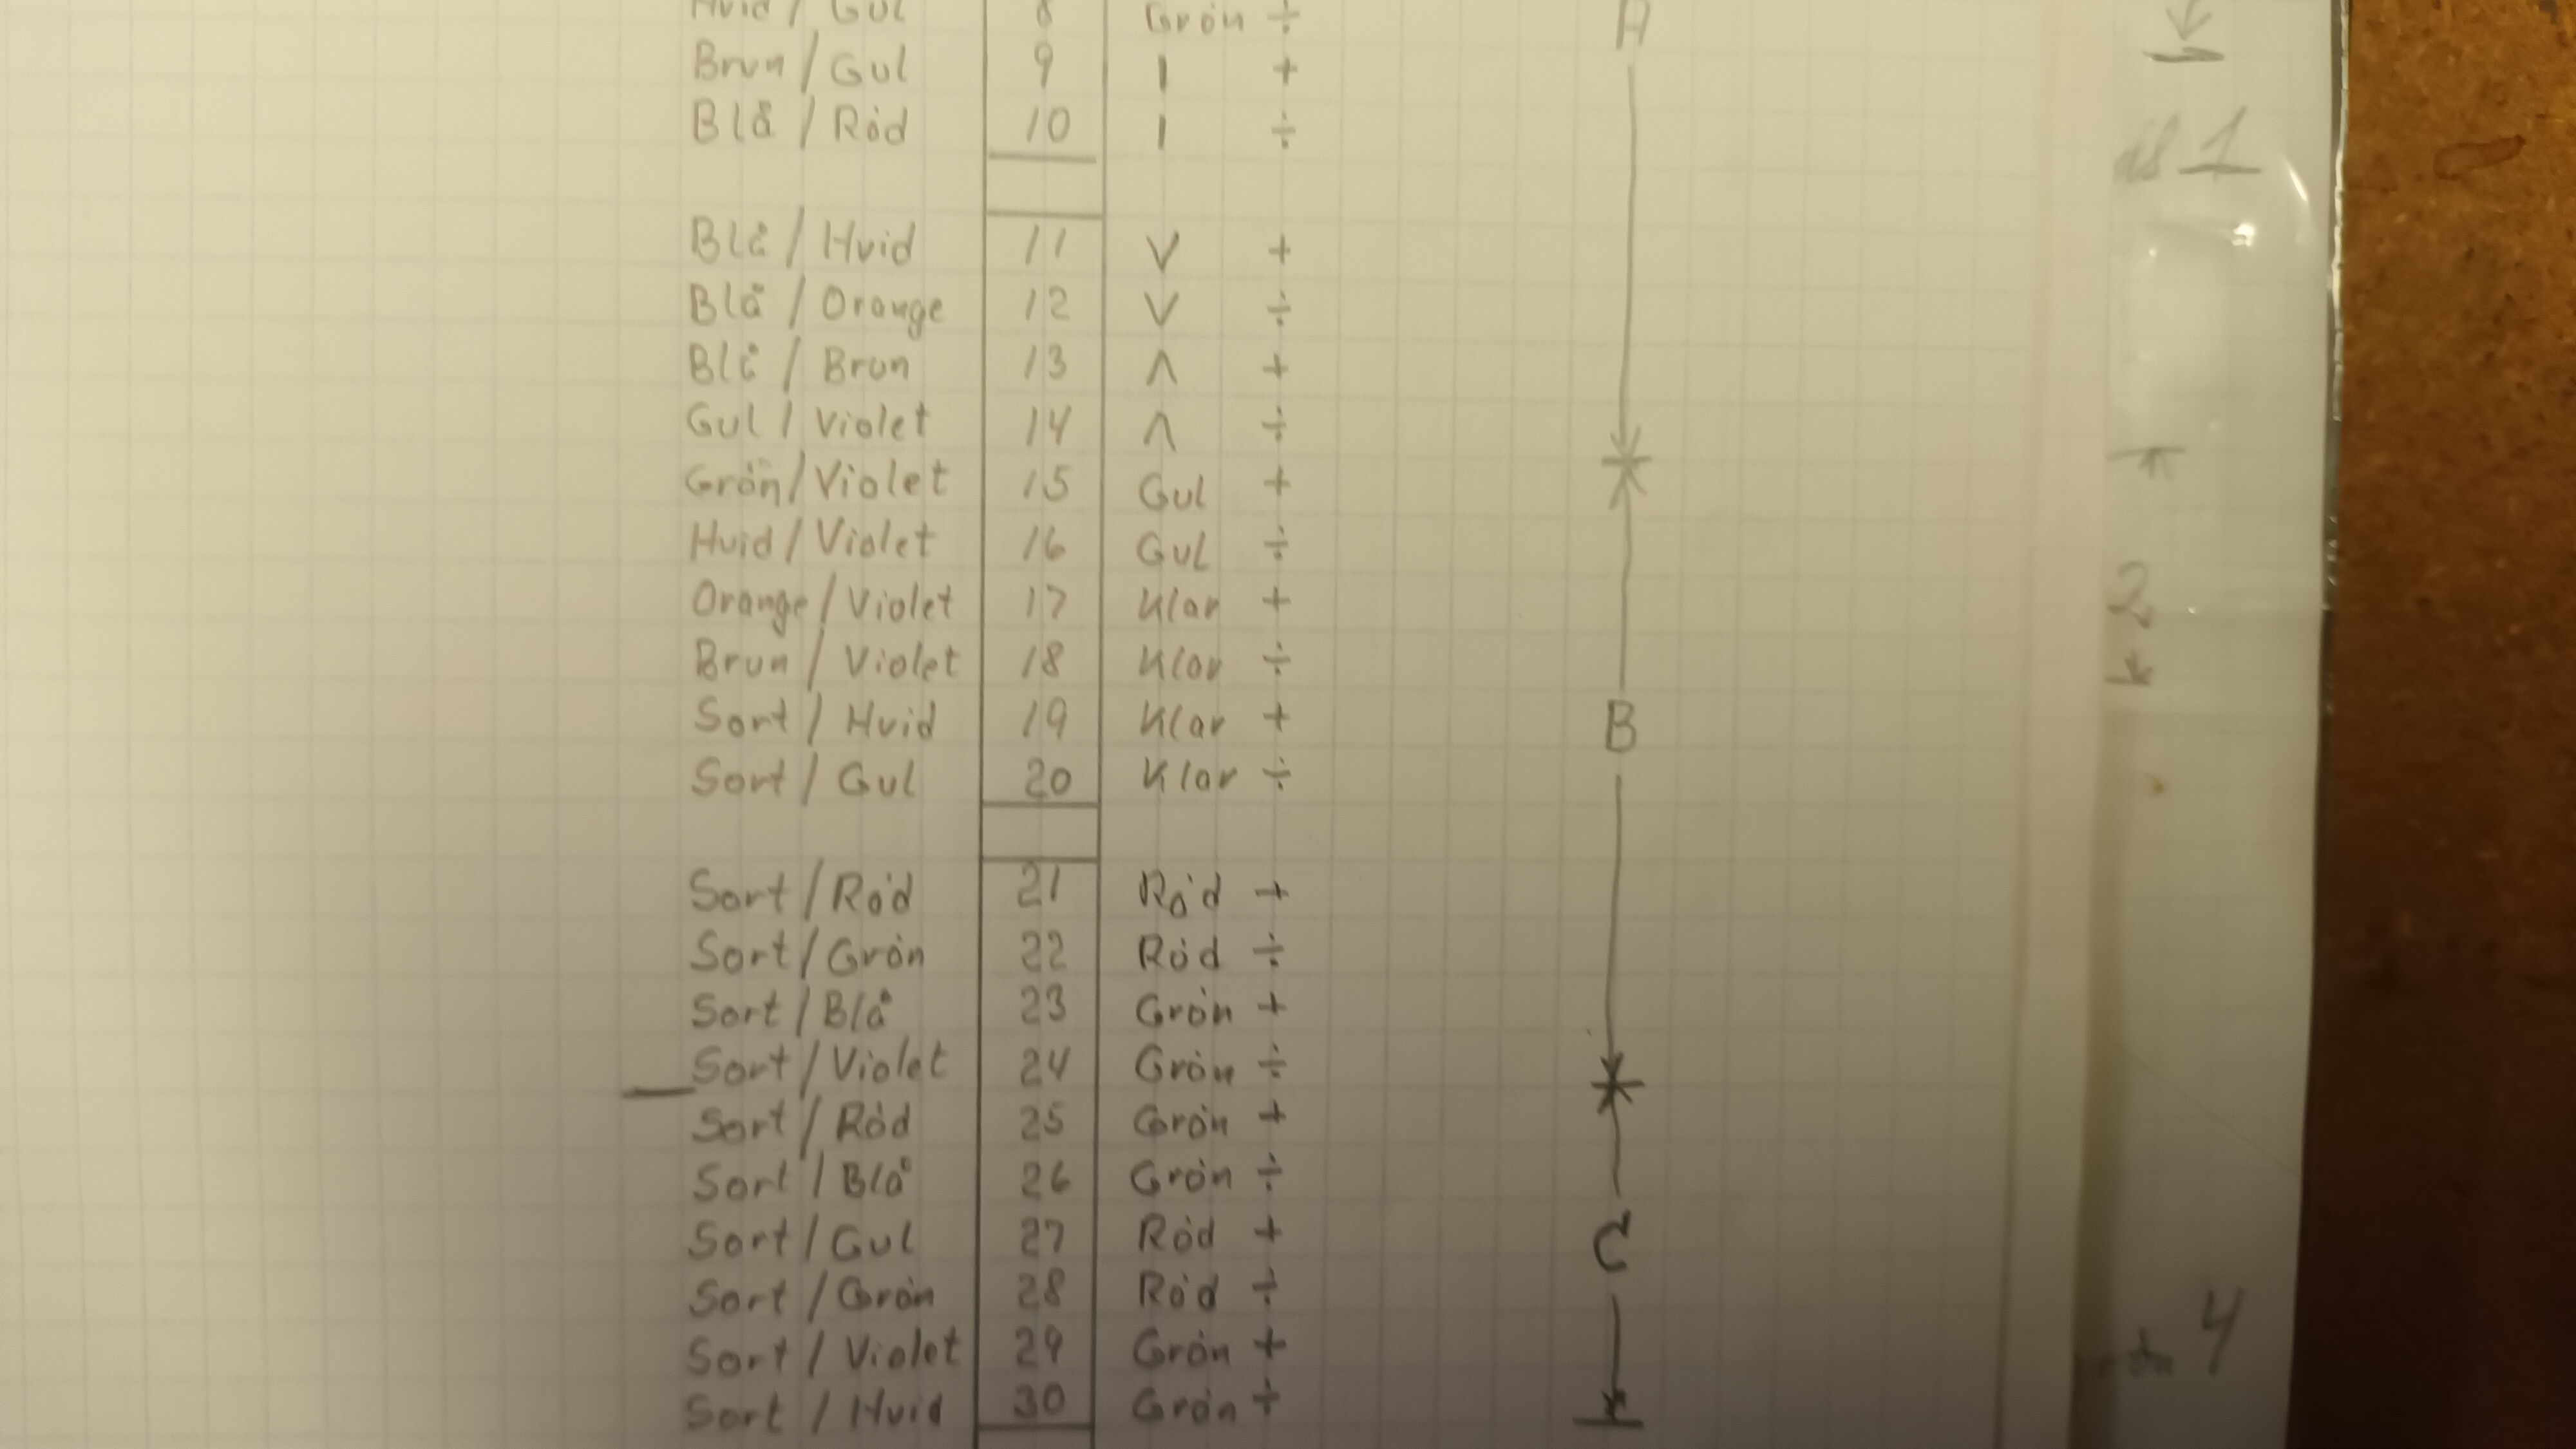 Brun / Gul 9 | +
Blå / Röd 10 | ÷
Blå / Hvid 11 V +
Blå / Orange 12 V ÷
Blå / Brun 13 Λ +
Gul / Violet 14 Λ ÷
Grön / Violet 15 Gul +
Hvid / Violet 16 Gul ÷
Orange / Violet 17 Klar +
Brun / Violet 18 Klar ÷
Sort / Hvid 19 Klar +
Sort / Gul 20 Klar ÷
B
Sort / Röd 21 Röd +
Sort / Grön 22 Röd ÷
Sort / Blå 23 Grön +
Sort / Violet 24 Grön ÷
Sort / Röd 25 Grön +
Sort / Blå 26 Grön ÷
Sort / Gul 27 Röd +
C
Sort / Grön 28 Röd ÷
Sort / Violet 29 Grön +
Sort / Hvid 30 Grön ÷
1
2
4